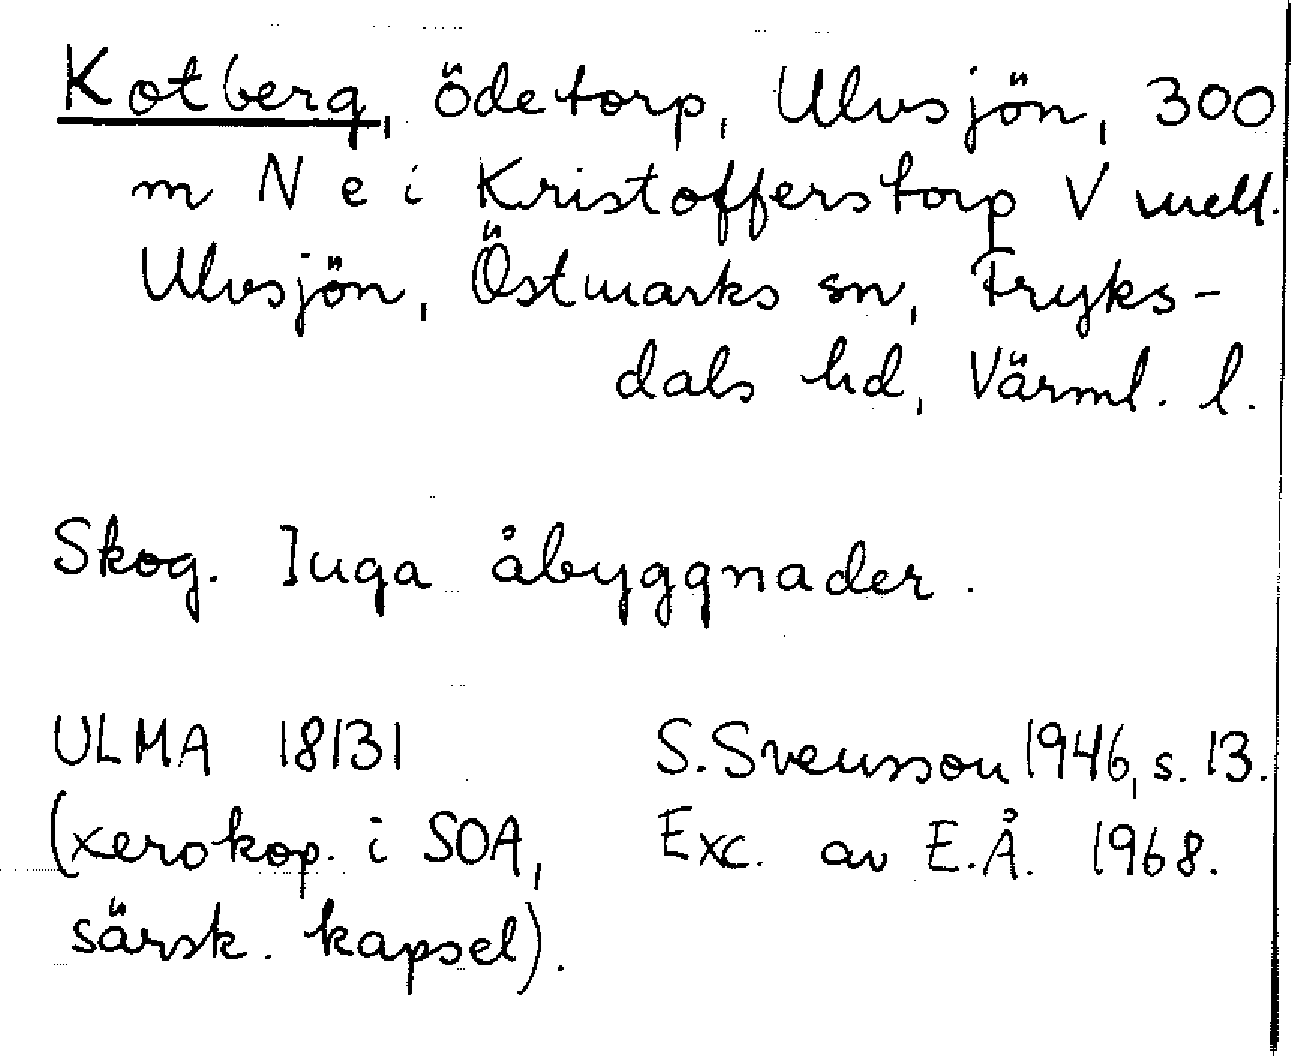 Kotberg, ödetorp, Ulvsjön, 300
m N e i Kristofferstorp V mell.
Ulvsjön, Östmarks sn, Fryks-
dals hd, Värml. l.
Skog. Inga åbyggnader.
ULMA 18131 S. Svensson 1946, s. 13.
(xerokop. i SOA, Exc. av E.Å. 1968.
särsk. kapsel).